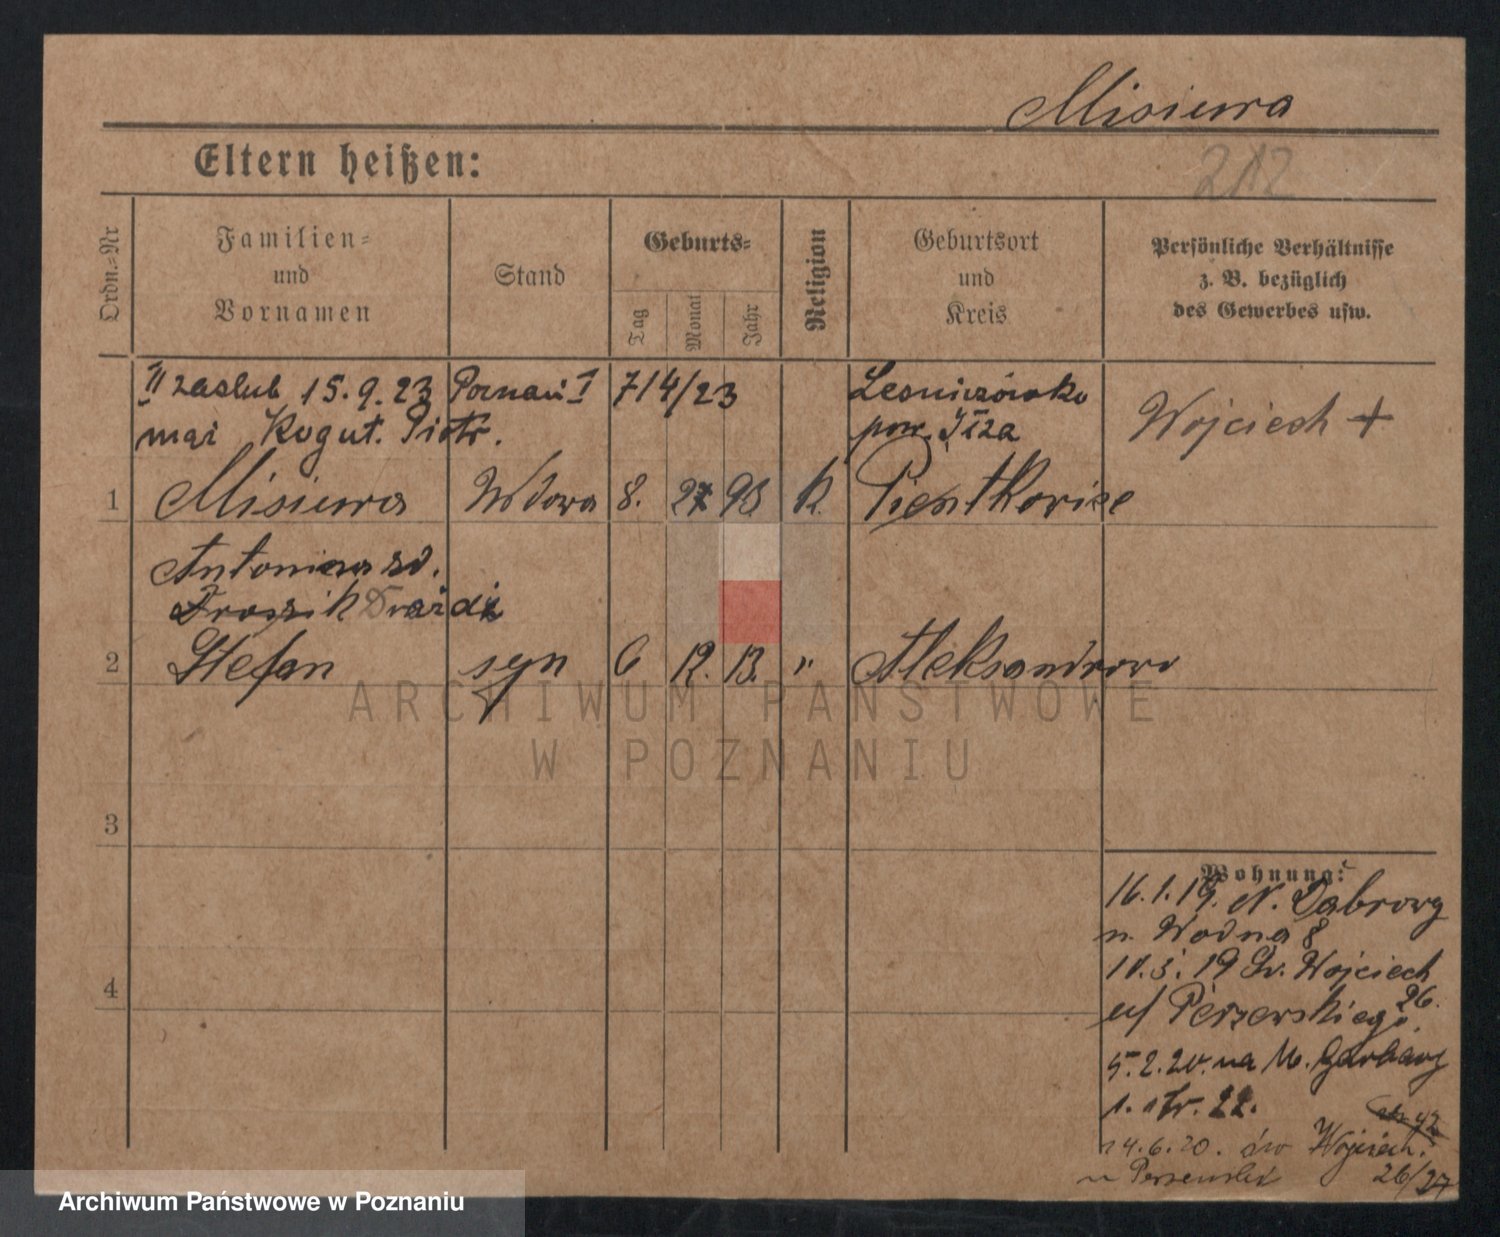 Misiewra
Eltern heißen:
212
Ordn.=Nr
Familien=
und
Vornamen
Stand
Geburts=
Tag
Monat
Jahr
Religion
Geburtsort
und
Kreis
Persönliche Verhältnisse
z. B. bezüglich
des Gewerbes usw.
II zaslub 15.9.23 Poznań I 7/4/23
Lesniczówko
mąż Kogut. Piotr.
pow. Iłża
Wojciech +
1 Misiewra Wdowa 8. 93 K. Pientkowice
Antonina zd.
2 Stefan syn 6 12. 13. " Aleksandrowo
3
4
Wohnung:
16.1.19. N. Dąbrowy
n. Wodna 8
19 Św. Wojciech
26.
u/ Perzerskiego.
5.2.20. na M. Garbary
1. str. 22.
14.6.20. św Wojciech.
26/27
ARCHIWUM PAŃSTWOWE
W POZNANIU
Archiwum Państwowe w Poznaniu